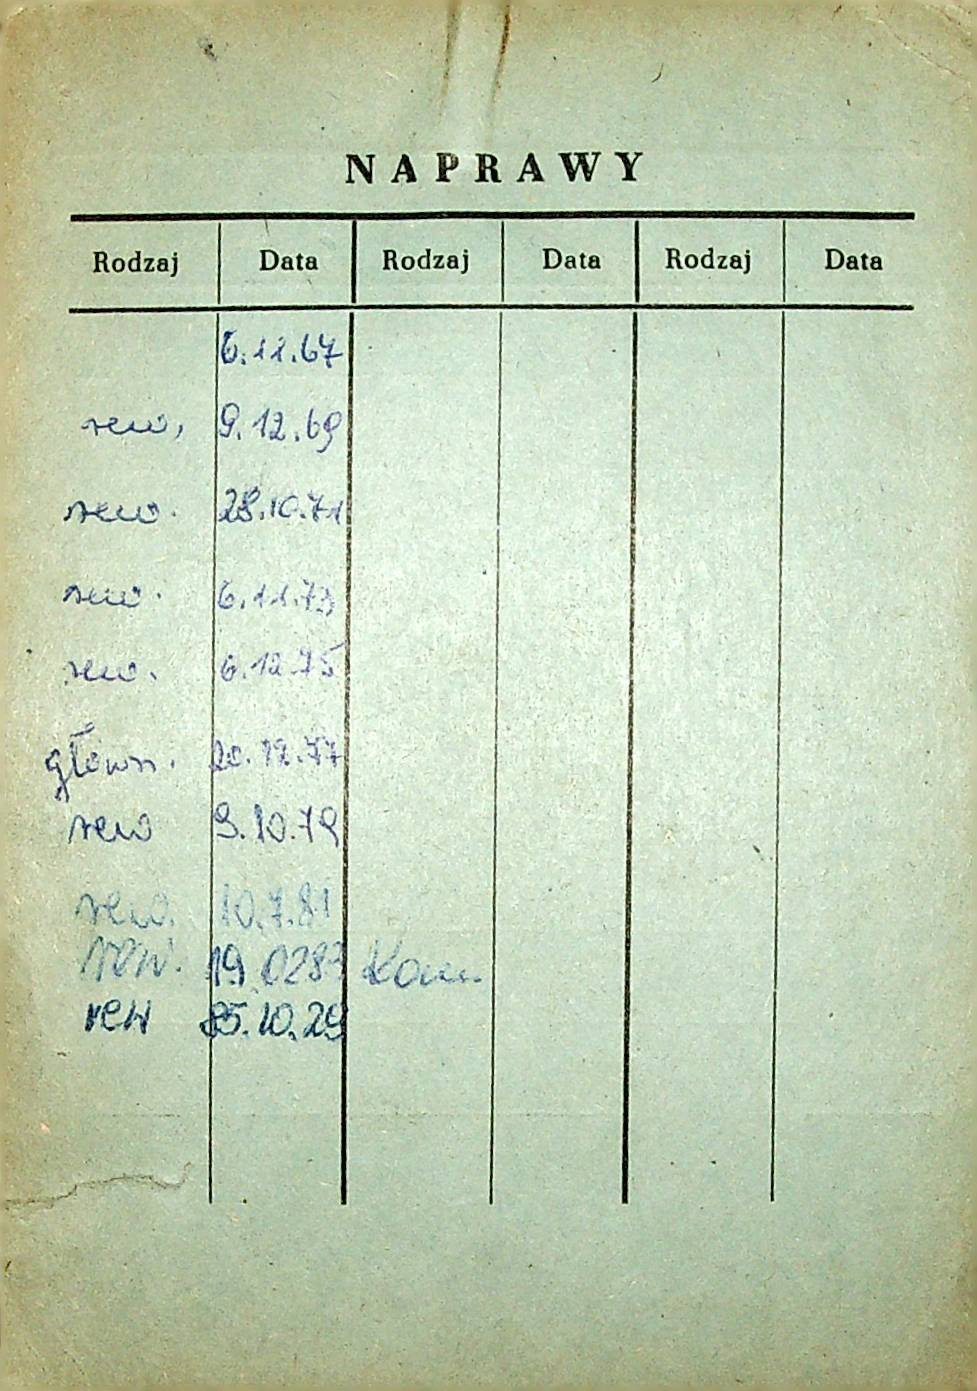 NAPRAWY
Rodzaj Data Rodzaj Data Rodzaj Data
6.11.67
rew. 9.12.69
rew. 28.10.71
rew. 6.11.73
rew. 6.12.75
główn. 20.12.77
rew 9.10.79
rew. 10.7.81
rew. 19 0283
rew 85.10.29